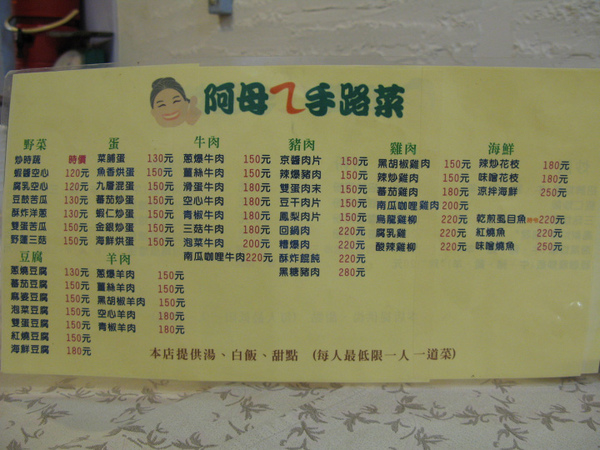 阿母ㄟ手路菜
野菜
炒時蔬 時價
蝦醬空心 120元
腐乳空心 120元
豆鼓苦瓜 130元
酥炸洋蔥 130元
雙蛋苦瓜 150元
野蓮三菇 150元
豆腐
蔥燒豆腐 130元
蕃茄豆腐 150元
麻婆豆腐 150元
泡菜豆腐 150元
雙蛋豆腐 150元
紅燒豆腐 150元
海鮮豆腐 180元
蛋
菜脯蛋 130元
魚香烘蛋 150元
九層混蛋 150元
蕃茄炒蛋 150元
蝦仁炒蛋 150元
金銀炒蛋 150元
海鮮烘蛋 150元
羊肉
蔥爆羊肉 150元
薑絲羊肉 150元
黑胡椒羊肉 150元
空心羊肉 180元
青椒羊肉 180元
牛肉
蔥爆牛肉 150元
薑絲牛肉 150元
滑蛋牛肉 180元
空心牛肉 180元
青椒牛肉 180元
三菇牛肉 180元
泡菜牛肉 200元
南瓜咖哩牛肉 220元
豬肉
京醬肉片 150元
辣爆豬肉 150元
雙蛋肉末 150元
豆干肉片 150元
鳳梨肉片 150元
回鍋肉 220元
糟爆肉 220元
酥炸餛飩 220元
黑糖豬肉 280元
雞肉
黑胡椒雞肉 150元
辣炒雞肉 150元
蕃茄雞肉 180元
南瓜咖哩雞肉 200元
烏龍雞柳 220元
腐乳雞 220元
酸辣雞柳 220元
海鮮
辣炒花枝 180元
味噌花枝 180元
涼拌海鮮 250元
乾煎虱目魚 220元
紅燒魚 220元
味噌燒魚 250元
本店提供湯、白飯、甜點 (每人最低限一人一道菜)